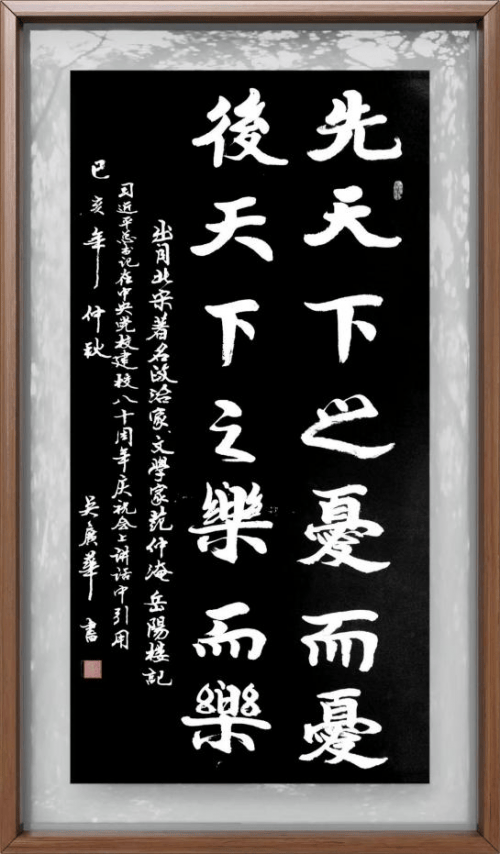 先天下之憂而憂
後天下之樂而樂
出自北宋著名政治家、文學家范仲淹岳陽樓記
习近平总书记在中央党校建校八十周年庆祝会上讲话中引用
己亥年仲秋
吴广華書